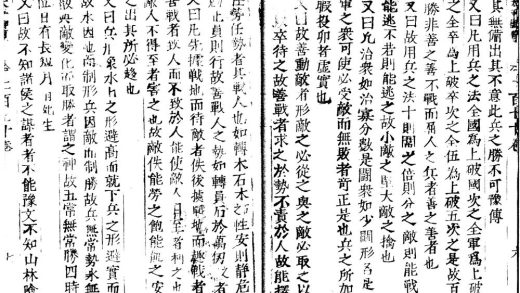 其無備出其不意此兵之勝不可豫傳
又曰凡用兵之法全國為上破國次之全軍為上破
之全卒為上破卒次之全伍為上破伍次之是故百
勝非善之善不戰而屈人之兵者善之善者也
又曰故用兵之法十則圍之倍則分之敵則能戰
能逃不若則能逃之故小敵之堅大敵之擒也
又曰凡治衆如治寡分數是闘衆如少闘形名是
軍之衆可使必受敵而無敗者奇正是也兵之所加
投卵者虛實也
曰故善動敵者形之敵必從之與之敵必取之以
以卒待之故善戰者求之於勢不責於人故能擇
任勢任勢者其戰人也如轉木石木石之性安則静危
則止員則行故善戰人之勢如轉員石於萬仞之
又曰凡先據戰地而待敵者佚後據戰地而趨戰者
善戰者致人而不致於人能使敵人自至者利之也
敵人不得至者害之也故敵佚能勞之飽能飢之安
之出其所必趨也
又曰兵形象水水之形避高而就下兵之形避實而
故水因地而制形兵因敵而制勝故兵無常勢水無
能與敵變化而取勝者謂之神故五常無常勝四時
位日有長短月有死生
又曰故不知諸侯之謀者不能豫交不知山林險